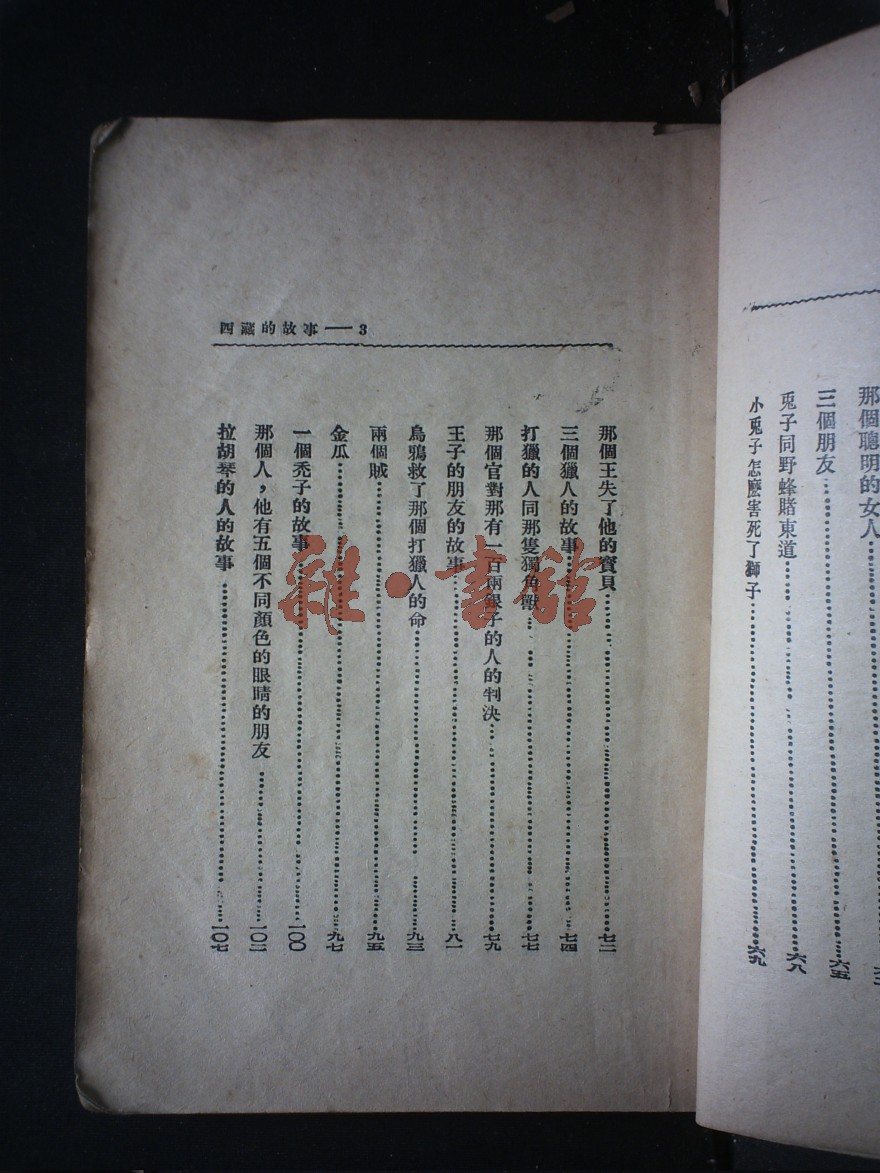 那個聰明的女人
三個朋友……六五
兎子同野蜂賭東道……六八
小兎子怎麽害死了獅子……六九
西藏的故事——3
那個王失了他的寳貝……七二
三個獵人的故事……七四
打獵的人同那隻獨角獸……七七
那個官對那有一百兩銀子的人的判決……七九
王子的朋友的故事……八一
烏鴉救了那個打獵人的命……九三
兩個賊……九五
金瓜……九七
一個禿子的故事……一〇〇
那個人，他有五個不同顏色的眼睛的朋友……一〇二
拉胡琴的人的故事……一〇七
雜·書館